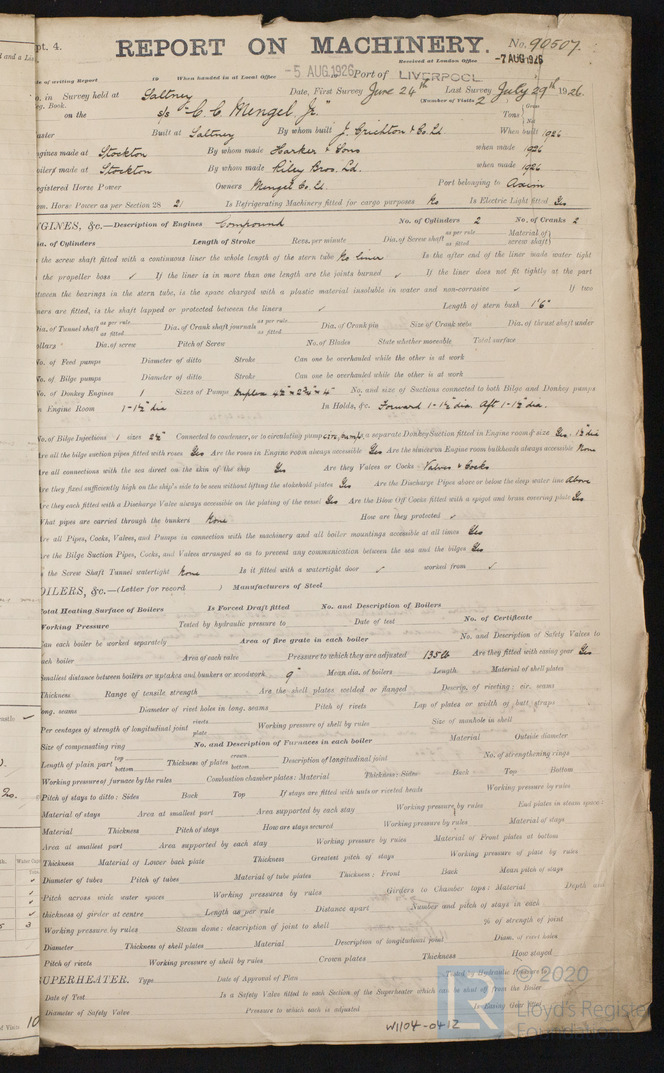 pt. 4.
REPORT ON MACHINERY.
No. 90507.
Received at London Office
-7 AUG 1926
Date of writing Report 19 When handed in at Local Office -5 AUG.1926 Port of LIVERPOOL
No. in Survey held at Saltney Date, First Survey June 24th Last Survey July 29th 1926
Reg. Book. (Number of Visits 2
on the s/s "C. C. Mengel Jr." Tons { Gross Net
Master Built at Saltney By whom built J. Crichton & Co. Ld. When built 1926
Engines made at Stockton By whom made Harker & Sons when made 1926
Boilers made at Stockton By whom made Riley Bros. Ld. when made 1926
Registered Horse Power Owners Mengel Co. Ld. Port belonging to Axim
Nom. Horse Power as per Section 28 21 Is Refrigerating Machinery fitted for cargo purposes No Is Electric Light fitted Yes
ENGINES, &c.—Description of Engines Compound No. of Cylinders 2 No. of Cranks 2
Dia. of Cylinders Length of Stroke Revs. per minute Dia. of Screw shaft as per rule as fitted Material of screw shaft
Is the screw shaft fitted with a continuous liner the whole length of the stern tube No liner Is the after end of the liner made water tight
in the propeller boss ✓ If the liner is in more than one length are the joints burned ✓ If the liner does not fit tightly at the part
between the bearings in the stern tube, is the space charged with a plastic material insoluble in water and non-corrosive ✓ If two
liners are fitted, is the shaft lapped or protected between the liners ✓ Length of stern bush 1'6"
Dia. of Tunnel shaft as per rule as fitted Dia. of Crank shaft journals as per rule as fitted Dia. of Crank pin Size of Crank webs Dia. of thrust shaft under
collars Dia. of screw Pitch of Screw No. of Blades State whether moveable Total surface
No. of Feed pumps Diameter of ditto Stroke Can one be overhauled while the other is at work
No. of Bilge pumps Diameter of ditto Stroke Can one be overhauled while the other is at work
No. of Donkey Engines 1 Sizes of Pumps Duplex 4½" x 2¾" x 4" No. and size of Suctions connected to both Bilge and Donkey pumps
In Engine Room 1-1½" dia In Holds, &c. Forward 1-1½" dia. Aft 1-1½" dia.
No. of Bilge Injections 1 sizes 2½" Connected to condenser, or to circulating pump circ. pump. Is a separate Donkey Suction fitted in Engine room & size Yes. 1½" dia
Are all the bilge suction pipes fitted with roses Yes Are the roses in Engine room always accessible Yes Are the sluices on Engine room bulkheads always accessible None
Are all connections with the sea direct on the skin of the ship Yes Are they Valves or Cocks Valves & Cocks
Are they fixed sufficiently high on the ship's side to be seen without lifting the stokehold plates Yes Are the Discharge Pipes above or below the deep water line Above
Are they each fitted with a Discharge Valve always accessible on the plating of the vessel Yes Are the Blow Off Cocks fitted with a spigot and brass covering plate Yes
What pipes are carried through the bunkers None How are they protected ✓
Are all Pipes, Cocks, Valves, and Pumps in connection with the machinery and all boiler mountings accessible at all times Yes
Are the Bilge Suction Pipes, Cocks, and Valves arranged so as to prevent any communication between the sea and the bilges Yes
Is the Screw Shaft Tunnel watertight None Is it fitted with a watertight door ✓ worked from ✓
BOILERS, &c.—(Letter for record ) Manufacturers of Steel
Total Heating Surface of Boilers Is Forced Draft fitted No. and Description of Boilers
Working Pressure Tested by hydraulic pressure to Date of test No. of Certificate
Can each boiler be worked separately Area of fire grate in each boiler No. and Description of Safety Valves to
each boiler Area of each valve Pressure to which they are adjusted 135 lb Are they fitted with easing gear Yes
Smallest distance between boilers or uptakes and bunkers or woodwork 9" Mean dia. of boilers Length Material of shell plates
Thickness Range of tensile strength Are the shell plates welded or flanged Descrip. of riveting: cir. seams
long. seams Diameter of rivet holes in long. seams Pitch of rivets Lap of plates or width of butt straps
Per centages of strength of longitudinal joint rivets plate Working pressure of shell by rules Size of manhole in shell
Size of compensating ring No. and Description of Furnaces in each boiler Material Outside diameter
Length of plain part top bottom Thickness of plates crown bottom Description of longitudinal joint No. of strengthening rings
Working pressure of furnace by the rules Combustion chamber plates: Material Thickness: Sides Back Top Bottom
Pitch of stays to ditto: Sides Back Top If stays are fitted with nuts or riveted heads Working pressure by rules
Material of stays Area at smallest part Area supported by each stay Working pressure by rules End plates in steam space:
Material Thickness Pitch of stays How are stays secured Working pressure by rules Material of stays
Area at smallest part Area supported by each stay Working pressure by rules Material of Front plates at bottom
Thickness Material of Lower back plate Thickness Greatest pitch of stays Working pressure of plate by rules
Diameter of tubes Pitch of tubes Material of tube plates Thickness: Front Back Mean pitch of stays
Pitch across wide water spaces Working pressures by rules Girders to Chamber tops: Material Depth and
thickness of girder at centre Length as per rule Distance apart Number and pitch of stays in each
Working pressure by rules Steam dome: description of joint to shell % of strength of joint
Diameter Thickness of shell plates Material Description of longitudinal joint Diam. of rivet holes
Pitch of rivets Working pressure of shell by rules Crown plates Thickness How stayed
SUPERHEATER. Type Date of Approval of Plan Tested by Hydraulic Pressure to
Date of Test Is a Safety Valve fitted to each Section of the Superheater which can be shut off from the Boiler
Diameter of Safety Valve Pressure to which each is adjusted Is Easing Gear fitted
W1104-0412
© 2020
Lloyd's Register
Foundation